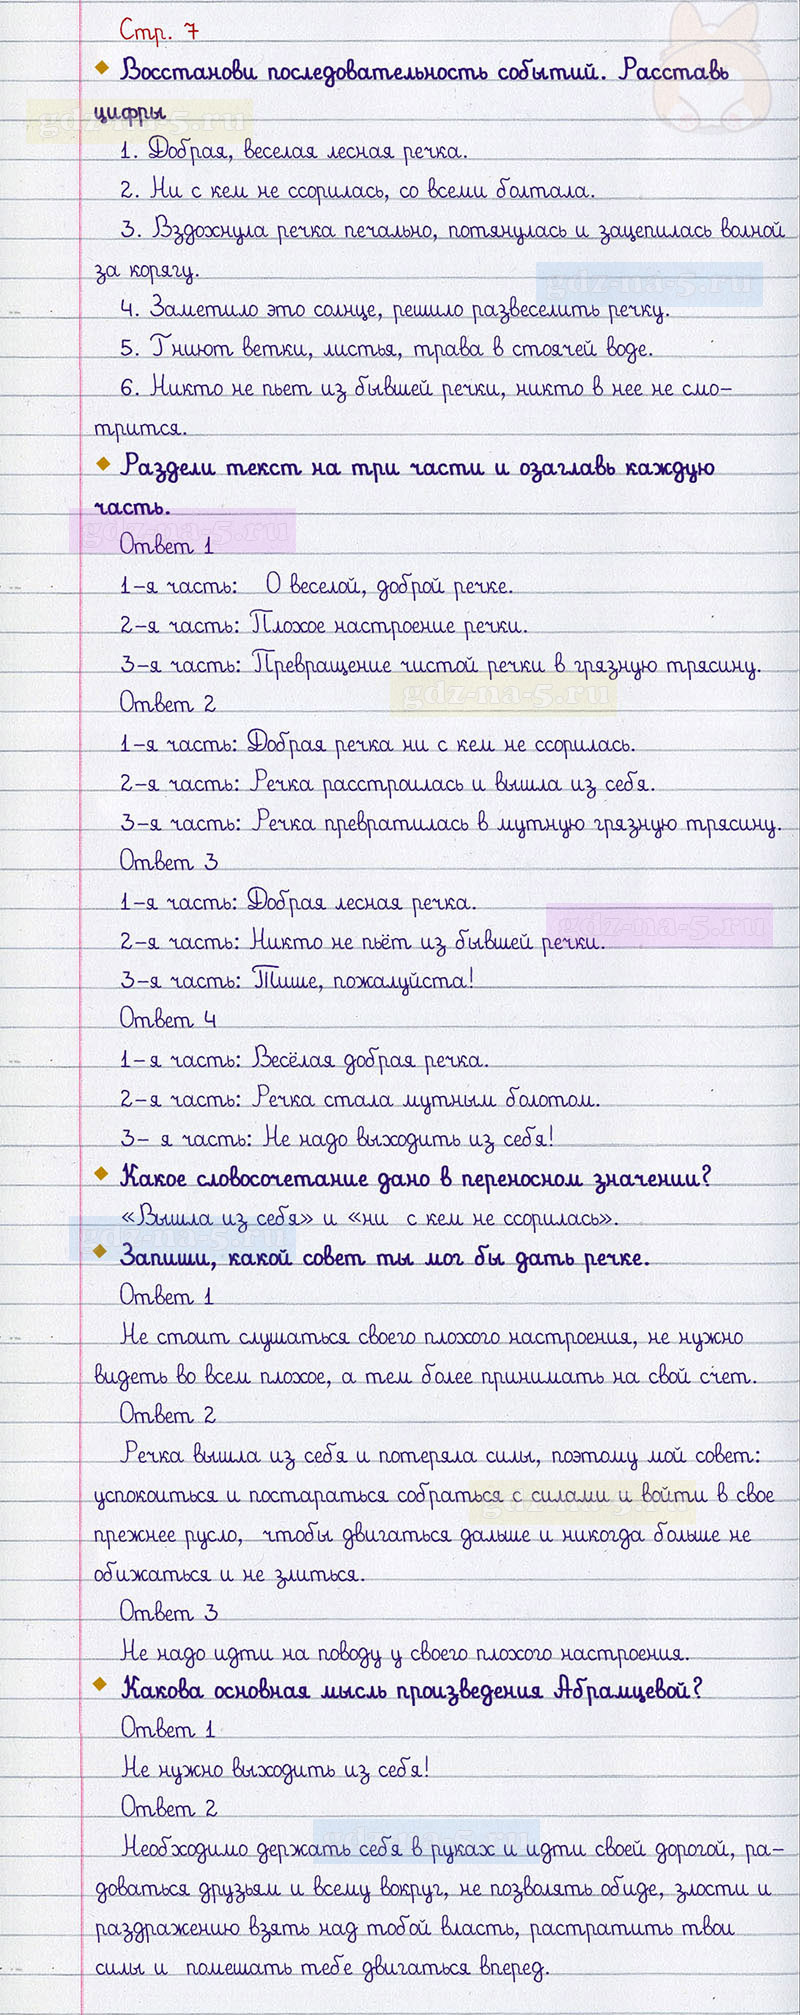 Стр. 7
Восстанови последовательность событий. Расставь
цифры
gdz-na-5.ru
1. Добрая, веселая лесная речка.
2. Ни с кем не ссорилась, со всеми болтала.
3. Вздохнула речка печально, потянулась и зацепилась волной
за корягу.
gdz-na-5.ru
4. Заметило это солнце, решило развеселить речку.
5. Гниют ветки, листья, трава в стоячей воде.
6. Никто не пьет из бывшей речки, никто в нее не смо-
трится.
Раздели текст на три части и озаглавь каждую
часть.
gdz-na-5.ru
Ответ 1
1-я часть: О веселой, доброй речке.
2-я часть: Плохое настроение речки.
3-я часть: Превращение чистой речки в грязную трясину.
gdz-na-5.ru
Ответ 2
1-я часть: Добрая речка ни с кем не ссорилась.
2-я часть: Речка расстроилась и вышла из себя.
3-я часть: Речка превратилась в мутную грязную трясину.
Ответ 3
1-я часть: Добрая лесная речка.
gdz-na-5.ru
2-я часть: Никто не пьёт из бывшей речки.
3-я часть: Тише, пожалуйста!
Ответ 4
1-я часть: Весёлая добрая речка.
2-я часть: Речка стала мутным болотом.
3- я часть: Не надо выходить из себя!
Какое словосочетание дано в переносном значении?
«Вышла из себя» и «ни с кем не ссорилась».
gdz-na-5.ru
Запиши, какой совет ты мог бы дать речке.
Ответ 1
Не стоит слушаться своего плохого настроения, не нужно
видеть во всем плохое, а тем более принимать на свой счет.
Ответ 2
Речка вышла из себя и потеряла силы, поэтому мой совет:
успокоиться и постараться собраться с силами и войти в свое
gdz-na-5.ru
прежнее русло, чтобы двигаться дальше и никогда больше не
обижаться и не злиться.
Ответ 3
Не надо идти на поводу у своего плохого настроения.
Какова основная мысль произведения Абрамцевой?
Ответ 1
Не нужно выходить из себя!
Ответ 2
gdz-na-5.ru
Необходимо держать себя в руках и идти своей дорогой, ра-
доваться друзьям и всему вокруг, не позволять обиде, злости и
раздражению взять над тобой власть, растратить твои
силы и помешать тебе двигаться вперед.